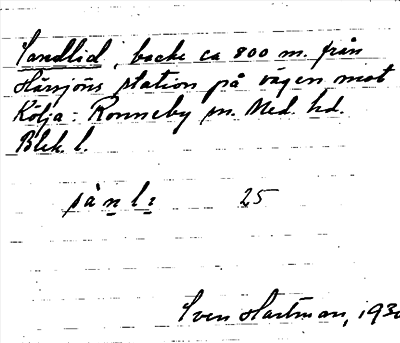 Sandlid, backe ca 800 m. från
Hässjöns station på vägen mot
Kölja: Ronneby sn. Med. hd.
Blek. l.
25
Sven Hartman, 193